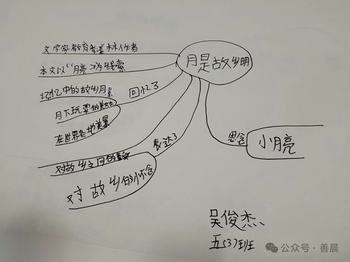 月是故乡明
文学家教育家季羡林作者
本文以"月亮"为线索
记忆中的故乡月
月下玩耍的
在世界各地
回忆了
对故乡之月的
对故乡的怀念
表达了
思念
小月亮
吴俊杰
五(3)班
公众号·善晨